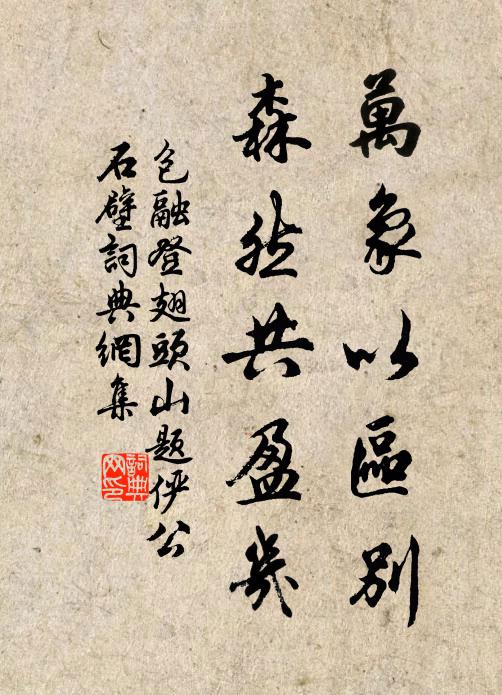 萬象以區別
森然共盈幾
包融登翅頭山題儼公
石壁詞典網集
詞典网印